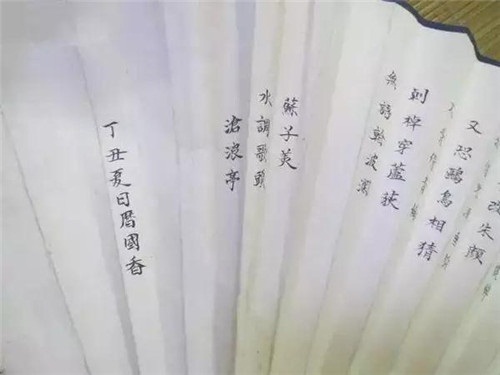 改朱顏
又恐鷗鳥相猜
刺棹穿蘆荻
無語看波瀾
蘇子美
水調歌頭
滄浪亭
丁丑夏日厲國香